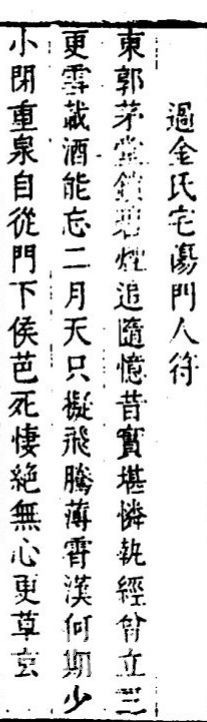 過金氏宅傷門人符
東郭茅堂鎖碧煙追隨憶昔實堪憐執經曾立三
更雪載酒能忘二月天只擬飛騰薄霄漢何期少
小閉重泉自從門下侯芭死悽絶無心更草玄